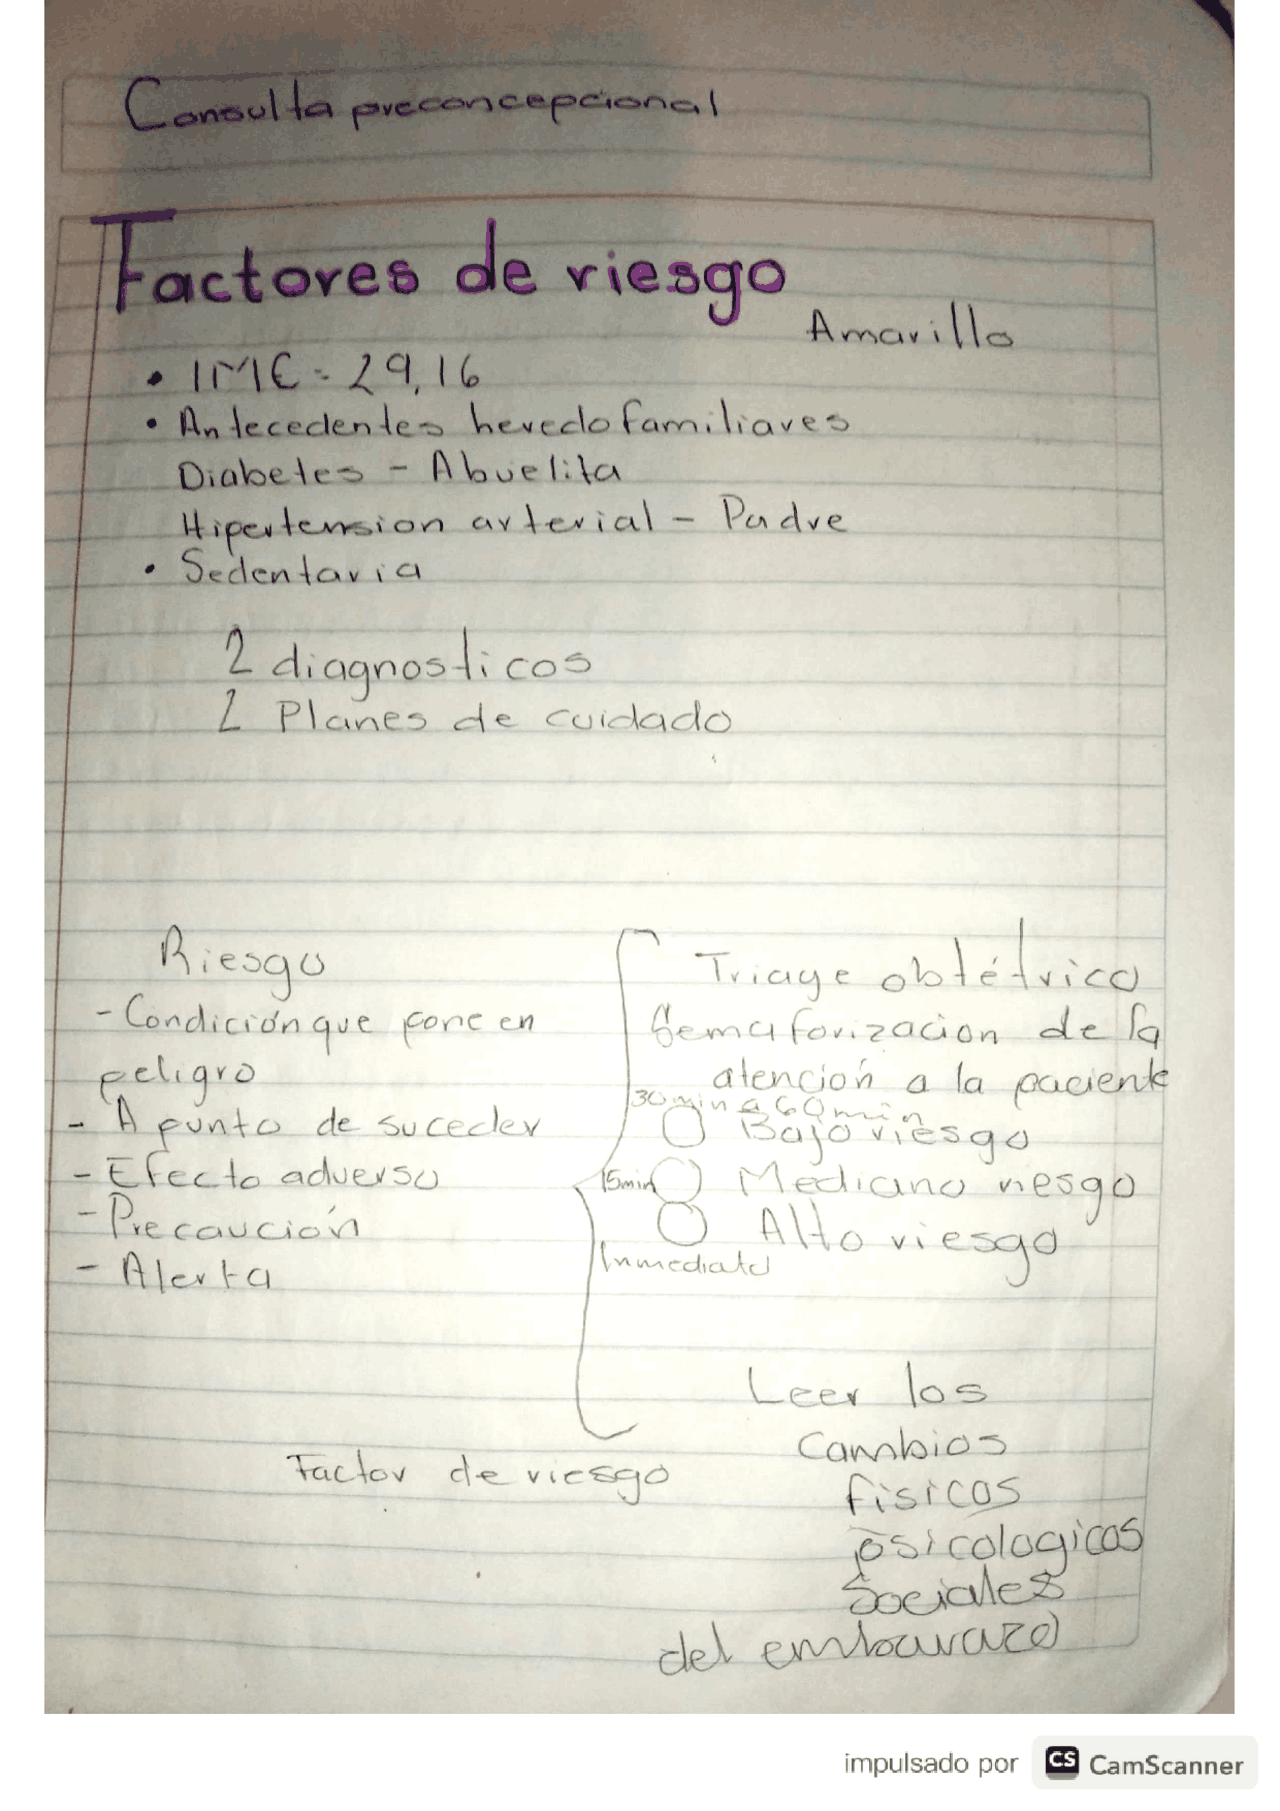 Consulta preconcepcional
Factores de riesgo
Amarillo
• IMC = 29,16
• Antecedentes heredofamiliares
Diabetes - Abuelita
Hipertension arterial - Padre
• Sedentaria
2 diagnosticos
2 Planes de cuidado
Riesgo
- Condición que pone en
peligro
- A punto de suceder
- Efecto adverso
- Precaución
- Alerta
Triage obtétrico
Semaforización de la
atención a la paciente
30 min a 60 min
Bajo riesgo
15min Mediano riesgo
Alto riesgo
Inmediato
Factor de riesgo
Leer los
Cambios
físicos
psicologicos
Sociales
del embarazo
impulsado por CS CamScanner